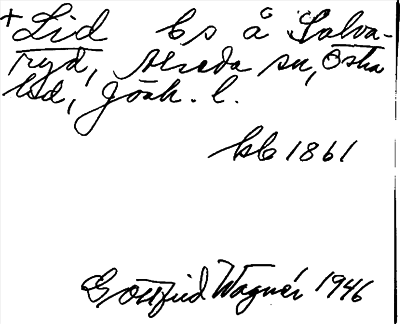 + Lid bs å Salva-
ryd, Alseda sn, Östra
hd, Jönk. l.
kb 1861
Gottfrid Wagnér 1946